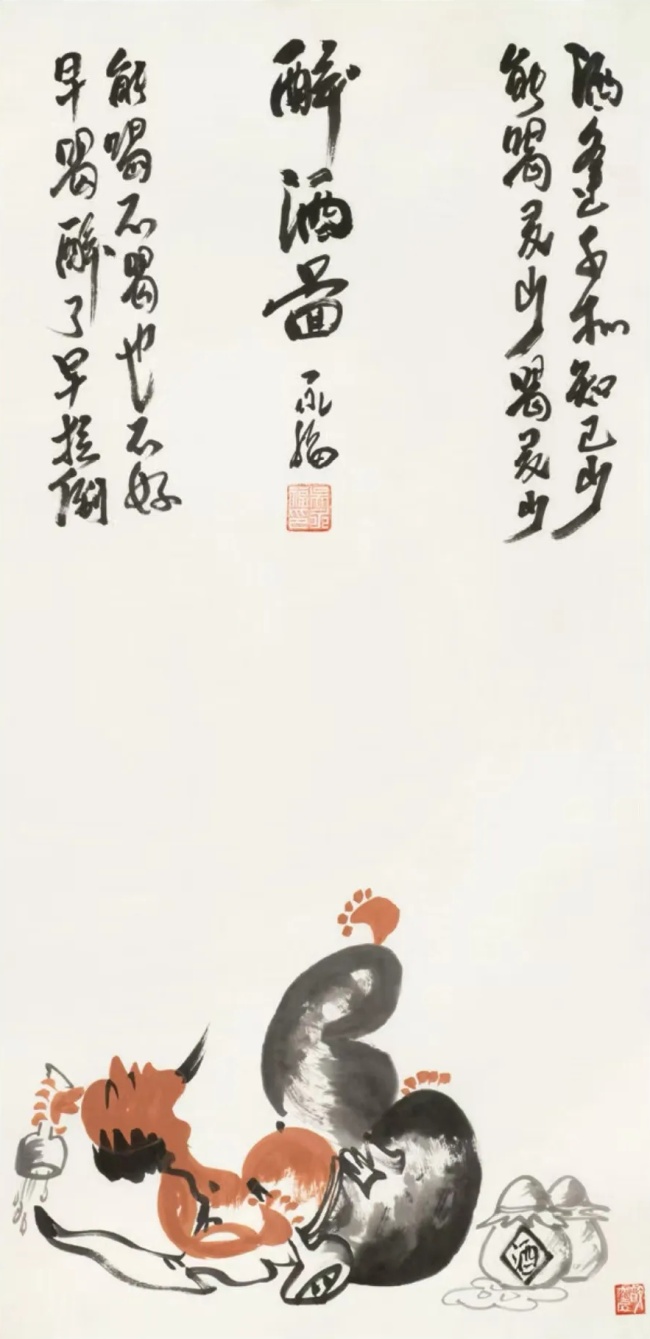 酒逢千杯知己少
能喝多少喝多少
醉酒啚 永福
能喝不喝也不好
早喝醉了早拉倒
酒